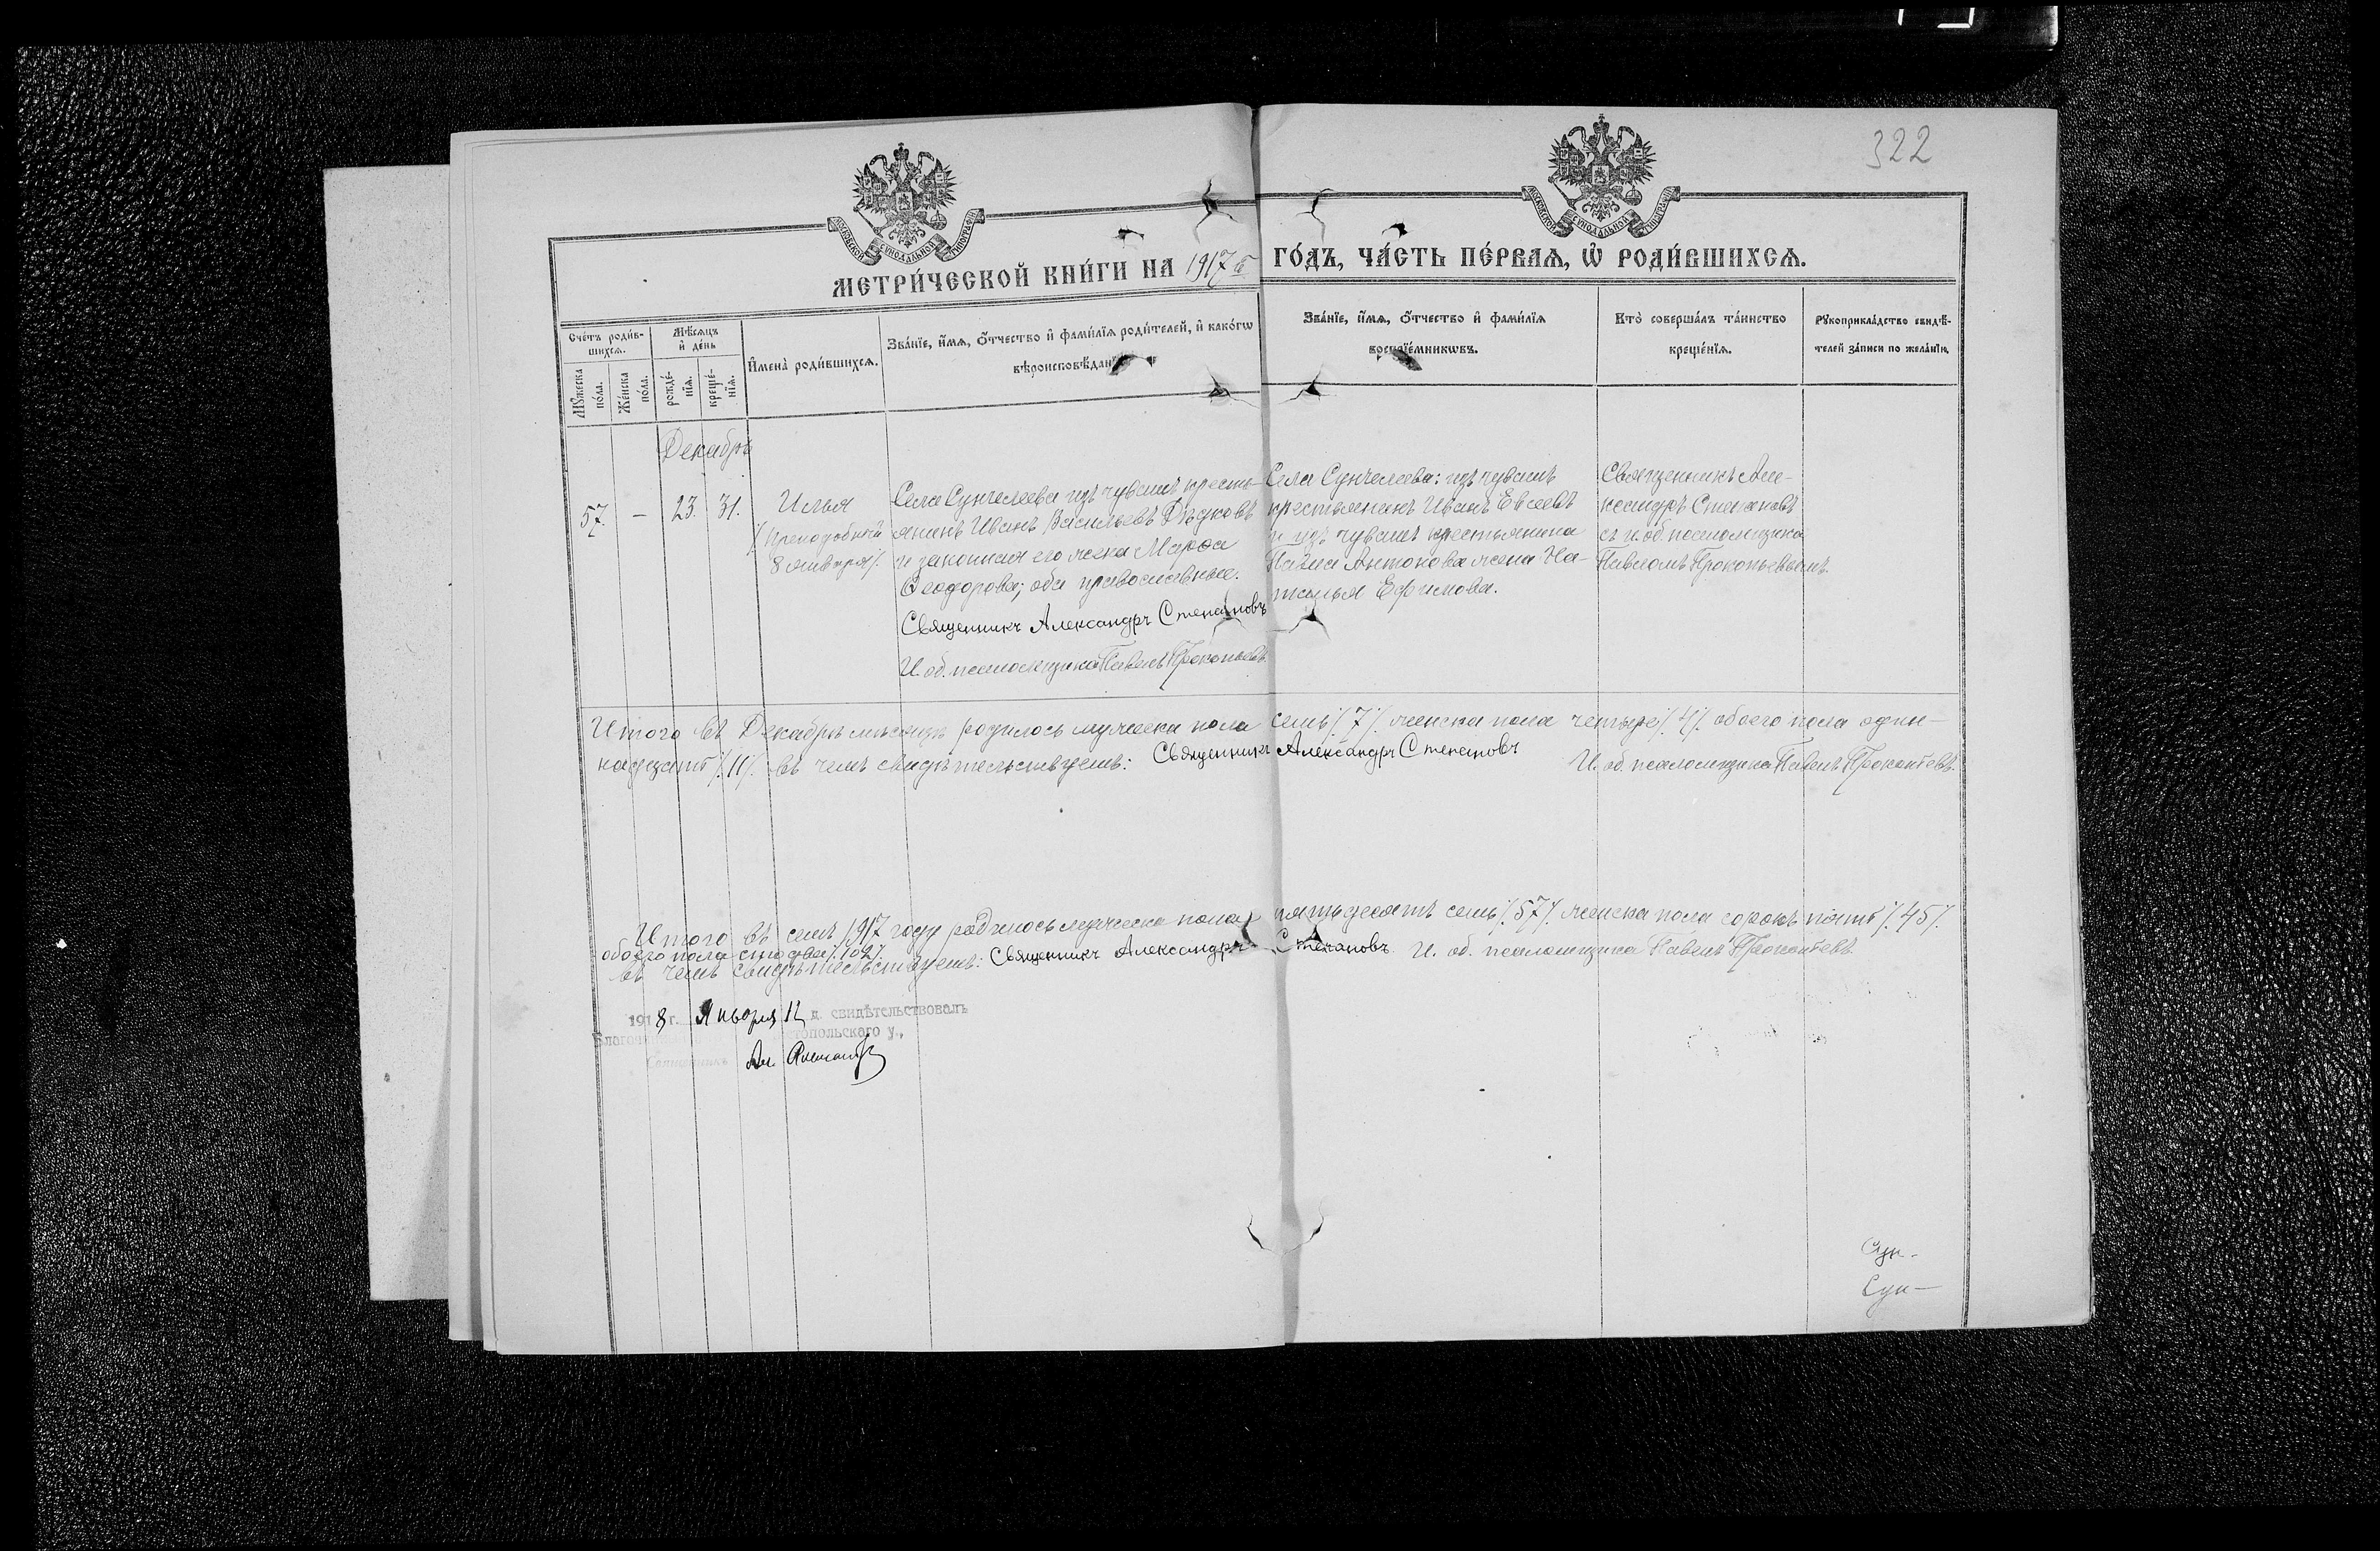 322
МОСКОВСКОЙ СѴНОДАЛЬНОЙ ТИПОГРАФІИ
МОСКОВСКОЙ СѴНОДАЛЬНОЙ ТИПОГРАФІИ
МЕТРИ́ЧЕСКОЙ КНИ́ГИ НА 1917й ГО́ДЪ, ЧА́СТЬ ПЕ́РВАѦ, Ѡ҆ РОДИ́ВШИХСѦ.
Сче́тъ роди́в-
шихсѧ.
Мꙋ́жеска по́ла.
Же́нска по́ла.
Мѣ́сѧцъ и҆ де́нь
рожде́-нїѧ.
креще́-нїѧ.
И҆мена̀ роди́вшихсѧ.
Зва́нїе, и҆́мѧ, ѻ҆́тчество и҆ фами́лїѧ роди́телей, и҆ како́гѡ
вѣроисповѣ́данїѧ
Зва́нїе, и҆́мѧ, ѻ҆́тчество и҆ фами́лїѧ
воспрїе́мникѡвъ.
Кто̀ соверша́лъ та́инство
креще́нїѧ.
Рꙋкоприкла́дство свидѣ́-
телей за́писи по жела́нїю.
Декабрь
57. — 23. 31.
Илья
/Преподобный
8 января/.
Села Сунчелеева изъ чувашъ кресть-
янинъ Иванъ Васильевъ Дѣдковъ
и законная его жена Марѳа
Ѳеодорова; оба православные.
Священникъ Александръ Степановъ
И. об. псаломщика Павелъ Прокопьевъ.
Села Сунчелеева: изъ чувашъ
крестьянинъ Иванъ Евсеевъ
и изъ чувашъ крестьянина
Павла Антонова жена На-
талья Ефимова.
Священникъ Але-
ксандръ Степановъ
съ и. об. псаломщика
Павломъ Прокопьевымъ.
Итого въ Декабрѣ мѣсяцѣ родилось мужеска пола семь /7/. женска пола четыре /4/. обоего пола один-
надцать /11/. въ чемъ свидѣтельствуемъ: Священникъ Александръ Степановъ И. об. псаломщика Павелъ Прокопьевъ.
Итого въ семъ 1917 году родилось мужеска пола пятьдесятъ семь /57/. женска пола сорокъ пять /45/.
обоего пола сто два /102/.
въ чемъ свидѣтельствуемъ: Священникъ Александръ Степановъ И. об. псаломщика Павелъ Прокопьевъ.
1918 г. Января 12 д. свидѣтельствовалъ
топольскаго у.,
Священникъ Ал.
Сун-
Сун-